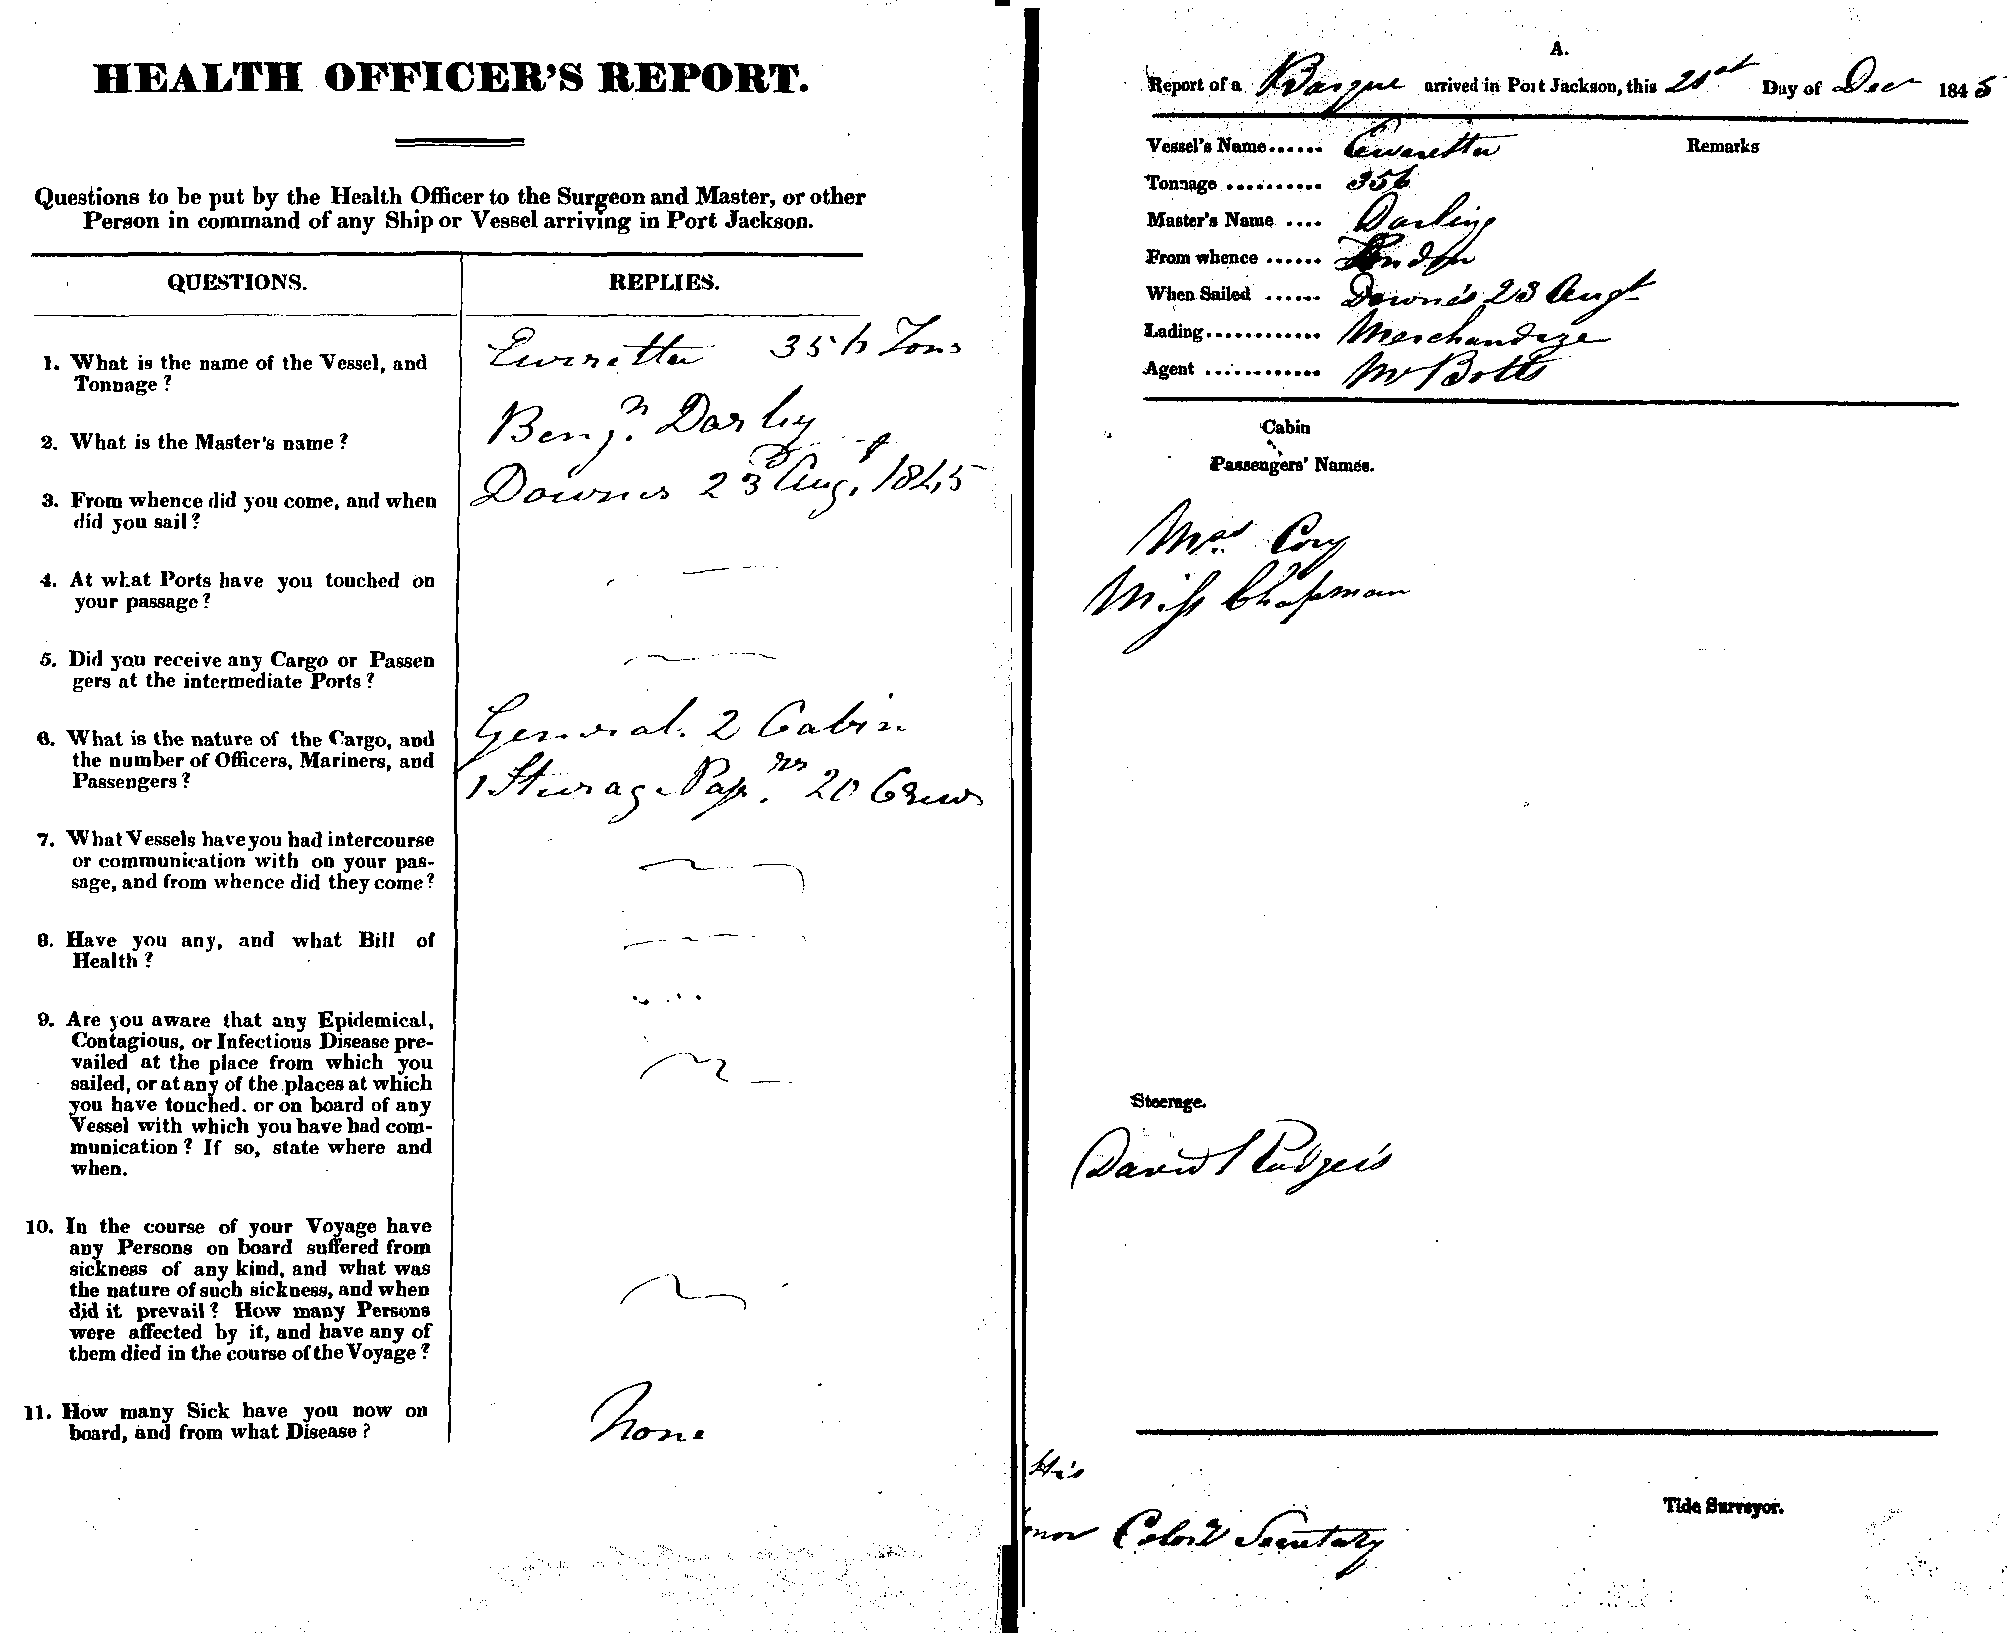 HEALTH OFFICER'S REPORT.
Questions to be put by the Health Officer to the Surgeon and Master, or other
Person in command of any Ship or Vessel arriving in Port Jackson.
QUESTIONS. REPLIES.
1. What is the name of the Vessel, and
Tonnage ?
Euretta 356 Tons
2. What is the Master's name ?
Benjn. Darley
3. From whence did you come, and when
did you sail ?
Downes 23d Augt 1845
4. At what Ports have you touched on
your passage ?
5. Did you receive any Cargo or Passen
gers at the intermediate Ports ?
6. What is the nature of the Cargo, and
the number of Officers, Mariners, and
Passengers ?
General. 2 Cabin
1 Sturage Passrs. 20 Crew
7. What Vessels have you had intercourse
or communication with on your pas-
sage, and from whence did they come ?
8. Have you any, and what Bill of
Health ?
9. Are you aware that any Epidemical,
Contagious, or Infectious Disease pre-
vailed at the place from which you
sailed, or at any of the places at which
you have touched. or on board of any
Vessel with which you have had com-
munication ? If so, state where and
when.
10. In the course of your Voyage have
any Persons on board suffered from
sickness of any kind, and what was
the nature of such sickness, and when
did it prevail ? How many Persons
were affected by it, and have any of
them died in the course of the Voyage ?
11. How many Sick have you now on
board, and from what Disease ?
None
A.
Report of a Barque arrived in Port Jackson, this 21st Day of Dec 1845
Vessel's Name...... Eweretta Remarks
Tonnage .......... 356
Master's Name .... Darling
From whence ...... London
When Sailed ...... Downes 23 Augt
Lading............ Merchandize
Agent ............ Mr Botts
Cabin
Passengers' Names.
Mrs. Cory
Miss Chapman
Steerage.
David Rodgers
His
Tide Surveyor.
Colonl Secretary